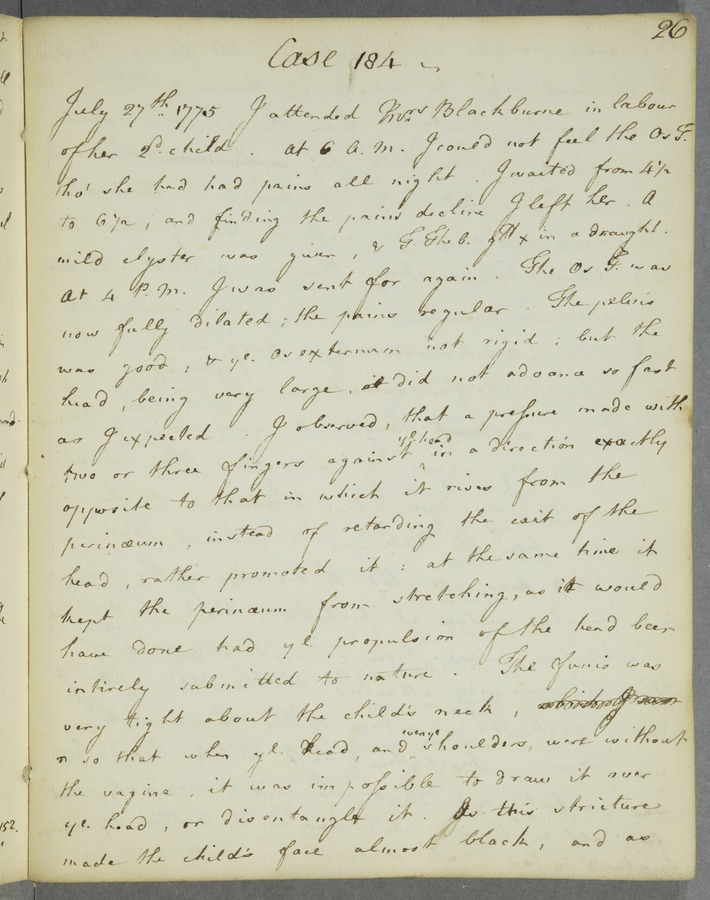 26
Case 184
July 27th. 1775 I attended Mrs Blackburne in labour
of her 2d. child. At 6 A. M. I could not feel the Os T.
tho' she had had pains all night. I waited from 4½
to 6½, and finding the pains decline I left her. A
mild clyster was given, & T. Theb. gtt x in a draught.
At 4 P. M. I was sent for again. The Os T. was
now fully dilated; the pains regular. The pelvis
was good, & ye. Os externum not rigid: but the
head, being very large, it did not advance so fast
as I expected. I observed, that a pressure made with
two or three fingers against ye. head in a direction exactly
opposite to that in which it rises from the
perinæum, instead of retarding the exit of the
head, rather promoted it: at the same time it
kept the perinæum from stretching, as it would
have done had ye propulsion of the head been
intirely submitted to nature. The funis was
very tight about the child's neck,
so that when ye. head, and even ye shoulders, were without
the vagina, it was impossible to draw it over
ye. head, or disentangle it. As this stricture
made the child's face almost black, and as
152.